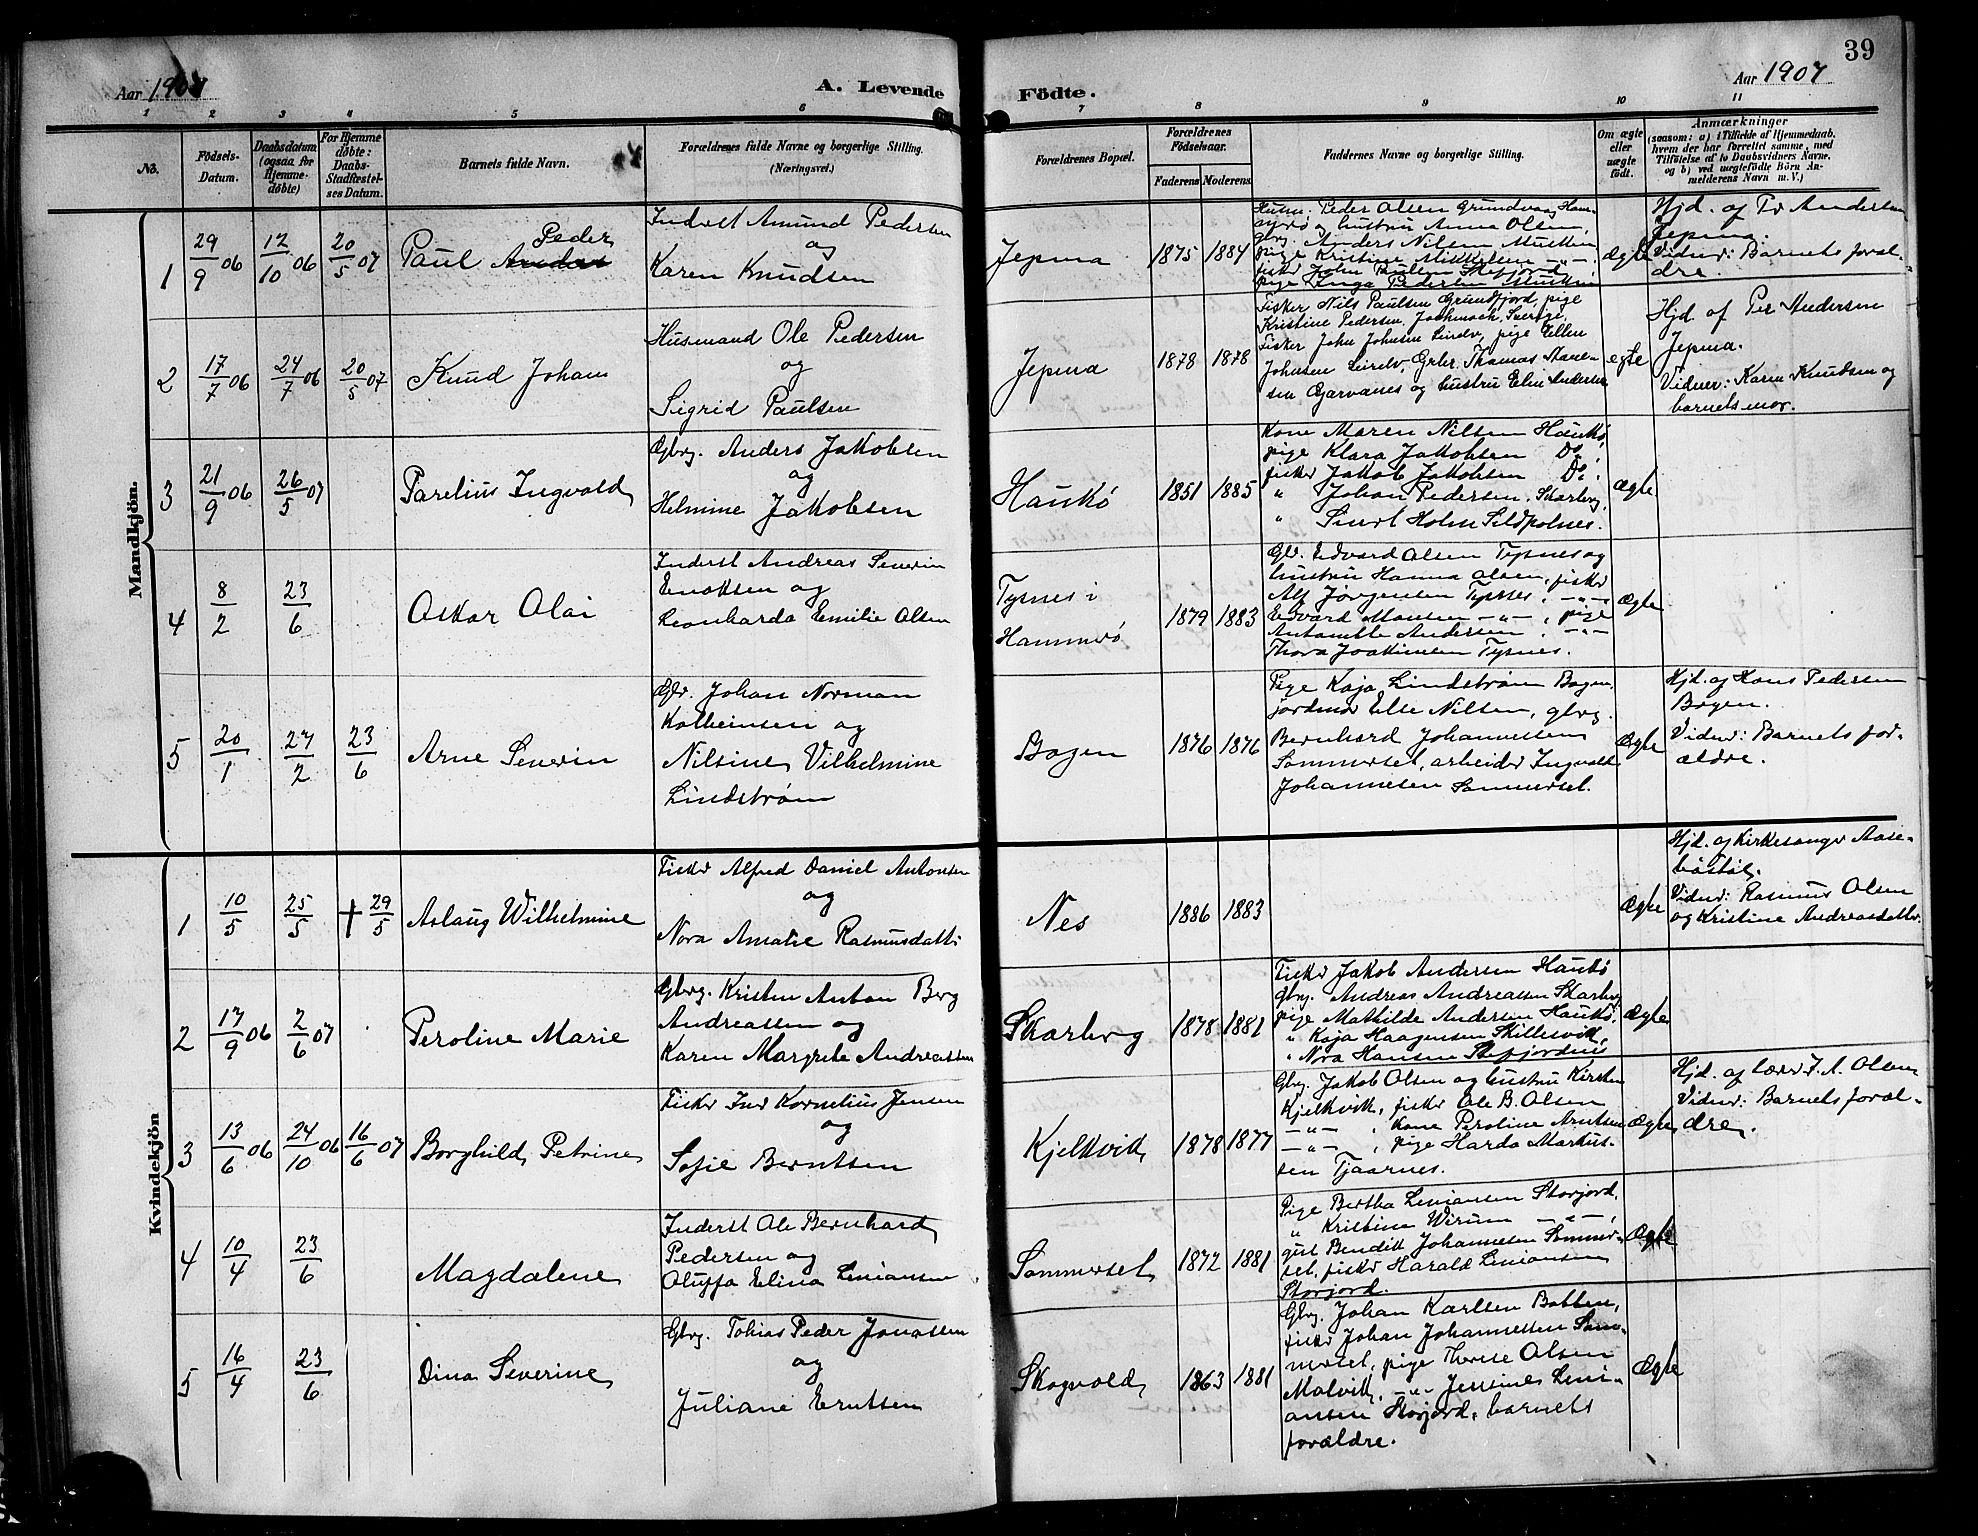 39
Aar 1907
A. Levende
Födte.
Aar 1907
1 2 3 4 5 6 7 8 9 10 11
No.
Födsels-
Datum.
Daabsdatum
(ogsaa for
Hjemme-
døbte)
For Hjemme
døbte:
Daabs-
Stadfæstel-
ses Datum.
Barnets fulde Navn.
Forældrenes fulde Navne og borgerlige Stilling.
(Næringsvei.)
Forældrenes Bopæl.
Forældrenes
Födselsaar.
Faderens
Moderens
Faddernes Navne og borgerlige Stilling.
Om ægte
eller
uægte
født.
Anmærkninger
(saasom: a) i Tilfælde af Hjemmedaab,
hvem der har forrettet samme, med
Tilföielse af to Daabsvidners Navne,
og b) ved uægtefödte Börn An-
melderens Navn m. V.)
Mandkjön.
1
29/9 06
12/10 06
20/5 07
Peder
Paul Anders
Inderst Amund Pedersen
og
Karen Knudsen
Jepma
1875
1884
Husm. Peder Olsen Grundvaag Ham-
merø og hustru Anna Olsen,
gbrg. Anders Nilsen
pige Kristine Mikkelsen -"-
fisker John Paulsen Stefjord,
pige Inga Pedersen
ægte
Hjd. af Pr Andersen
Jepma.
Vidner: Barnets foræl-
dre.
2
17/7 06
24/7 06
20/5 07
Knud Johan
Husmand Ole Pedersen
og
Sigrid Paulsen
Jepma
1878
1878
Fisker Nils Paulsen Grundfjord, pige
Kristine Pedersen, Jochmoch, Sverige,
Fisker John Johnsen, pige Ellen
Johnsen, Thomas
sen Gjarvanes og hustru Elin Andersen
egte
Hjd. af Per Andersen
Jepma.
Vidner: Karen Knudsen og
barnets mor.
3
21/9 06
26/5 07
Parelius Ingvald
Gbrg. Anders Jakobsen
og
Helmine Jakobsen
Haukø
1851
1885
Kone Maren Nilsen Haukø,
pige Klara Jakobsen Do.
fisker Jakob Jakobsen Do.
" Johan Pedersen, Skarberg,
" Sivert Holm Sildpolnes.
ægte
4
8/2
23/6
Oskar Olai
Inderst Andreas Severin
Enoksen og
Leonharda Emilie Olsen
Tysnes i
Hammerø
1879
1883
Gbr. Edvard Olsen Tysnes og
hustru Hanna Olsen, fisker
Alf Jørgensen Tysnes, -"-
Edvard Monsen -"-, pige
Antonette Andersen, -"-
Thora Joakimsen Tysnes.
Ægte
5
20/1
27/2
23/6
Arne Severin
Gbr. Johan Norman
Kolbeinsen og
Nilsine Vilhelmine
Lindstrøm
Bogen
1876
1876
Pige Kaja Lindstrøm Bogen,
jordmor Else Nilsen, gbrg.
Bernhard Johannessen
Sommerset, arbeider Ingvald
Johannesen Sommerset.
Ægte
Hjd. af Hans Pedersen
Bogen.
Vidner: Barnets for-
ældre.
Kvindekjön
1
10/5
25/5
† 29/5
Aslaug Wilhelmine
Fisker Alfred Daniel Antonsen
og
Nora Amalie Rasmusdatter
Nes
1886
1883
Ægte
Hjd. af Kirkesanger Aase-
bøstøl.
Vidner: Rasmus Olsen
og Kristine Andreasdatter.
2
17/9 06
2/6 07
Peroline Marie
Gbrg. Kristen Anton Berg
Andreassen og
Karen Margrete Andreassen
Skarberg
1878
1881
Fisker Jakob Andersen Haukø
Gbrg. Andreas Andreassen Skarberg
pige Mathilde Andersen Haukø,
" Kaja Haagensen Skillesvik,
" Nora Hansen Stefjordnes
Ægte
3
13/6 06
24/10 06
16/6 07
Borghild Petrine
Fisker Iver Kornelius Jensen
og
Sofie Berntsen
Kjelkvik
1878
1877
Gbrg. Jakob Olsen og hustru Kirsten
Kjelkvik, fisker Ole B. Olsen
-"-, kone Peroline Arntsen
-"-, pige Harda Markus-
sen Tjaarnes.
Ægte
Hjd. af Lærer J. A. Olsen
Vidner: Barnets foræl-
dre.
4
10/4
23/6
Magdalene
Inderst Ole Bernhard
Pedersen og
Oluffa Elina Liniansen
Sommerset
1872
1881
Pige Bertha Liniansen Storjord,
" Kristine Wirum -"-,
gut Bendikt Johannesen Sommer-
set, fisker Harald Liniansen
Storjord.
Ægte
5
16/4
23/6
Dina Severine
Gbrg. Tobias Peder Jonassen
og
Juliane Erntsen
Skogvold
1863
1881
Gbrg. Johan Karlsen Botten,
fisker Johan Johannessen Som-
merset, pige Therese Olsen
Malvik, -"- Jensine Lini-
ansen Storjord, barnets
forældre.
Ægte